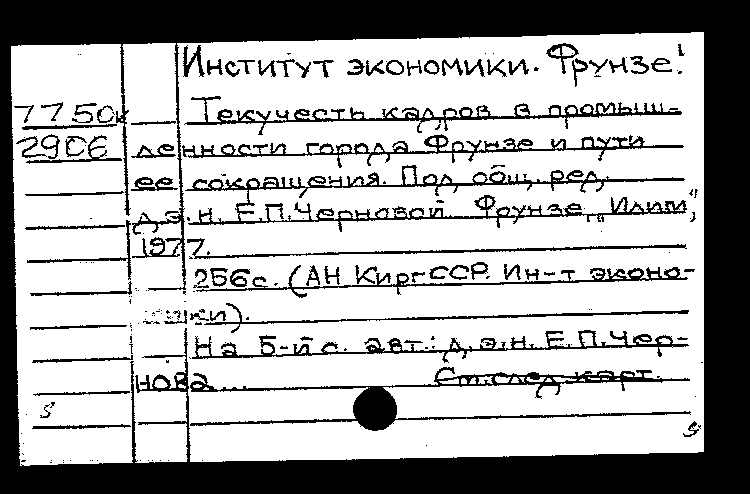 Институт экономики. Фрунзе.
7750к Текучесть кадров в промыш-
2906 ленности города Фрунзе и пути
ее сокращения. Под общ. ред.
д.э.н. Е.П.Черновой. Фрунзе, "Илим",
1977.
256с. (АН КиргССР. Ин-т эконо-
мики).
На 5-й с. авт.: д.э.н. Е.П.Чер-
нова... См. след. карт.